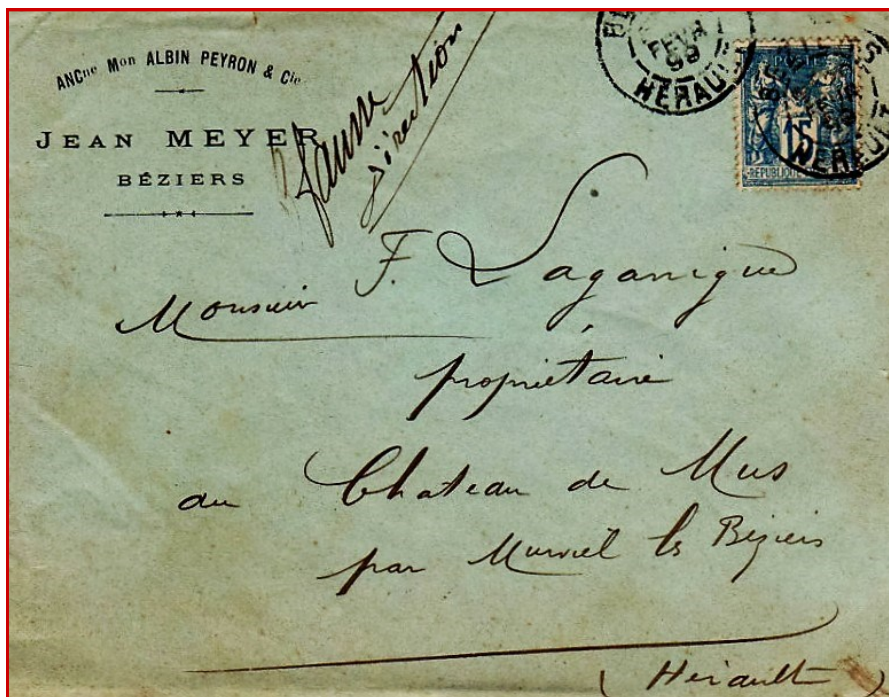 ANCne Mon ALBIN PEYRON & Cie
JEAN MEYER
BÉZIERS
fausse
direction
FEVR
99
HERAULT
15
REPUBLIQUE
HERAULT
Monsieur F. Laganigue
propriétaire
au Chateau de Mus
par Murviel les Béziers
(Hérault)